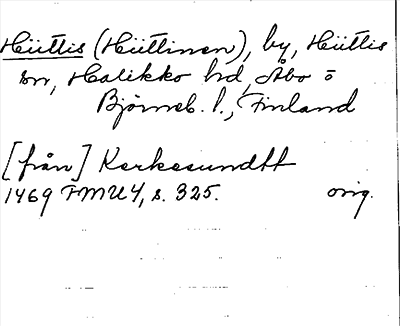 Hüttis (Hüttinen), by, Hüttis
sn, Halikko hd, Åbo o
Björneb. l., Finland
[från] Kerkesundtt
1469 FMU 4, s. 325. orig.